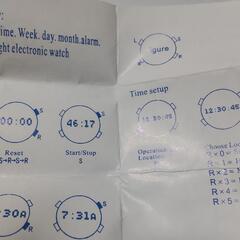 ime. Week. day. month. alarm.
ght electronic watch
L
S
R
igure
Time setup
S
R
00:00
Reset
S→R→S→R
S
46:17
Start/Stop
S
12:30:45
Location
R
12:30:45
Choose Loc
R×0=
R×1=
R×2=
R×3=
R×4=
R×5=
:30A
S
R
7:31A
S